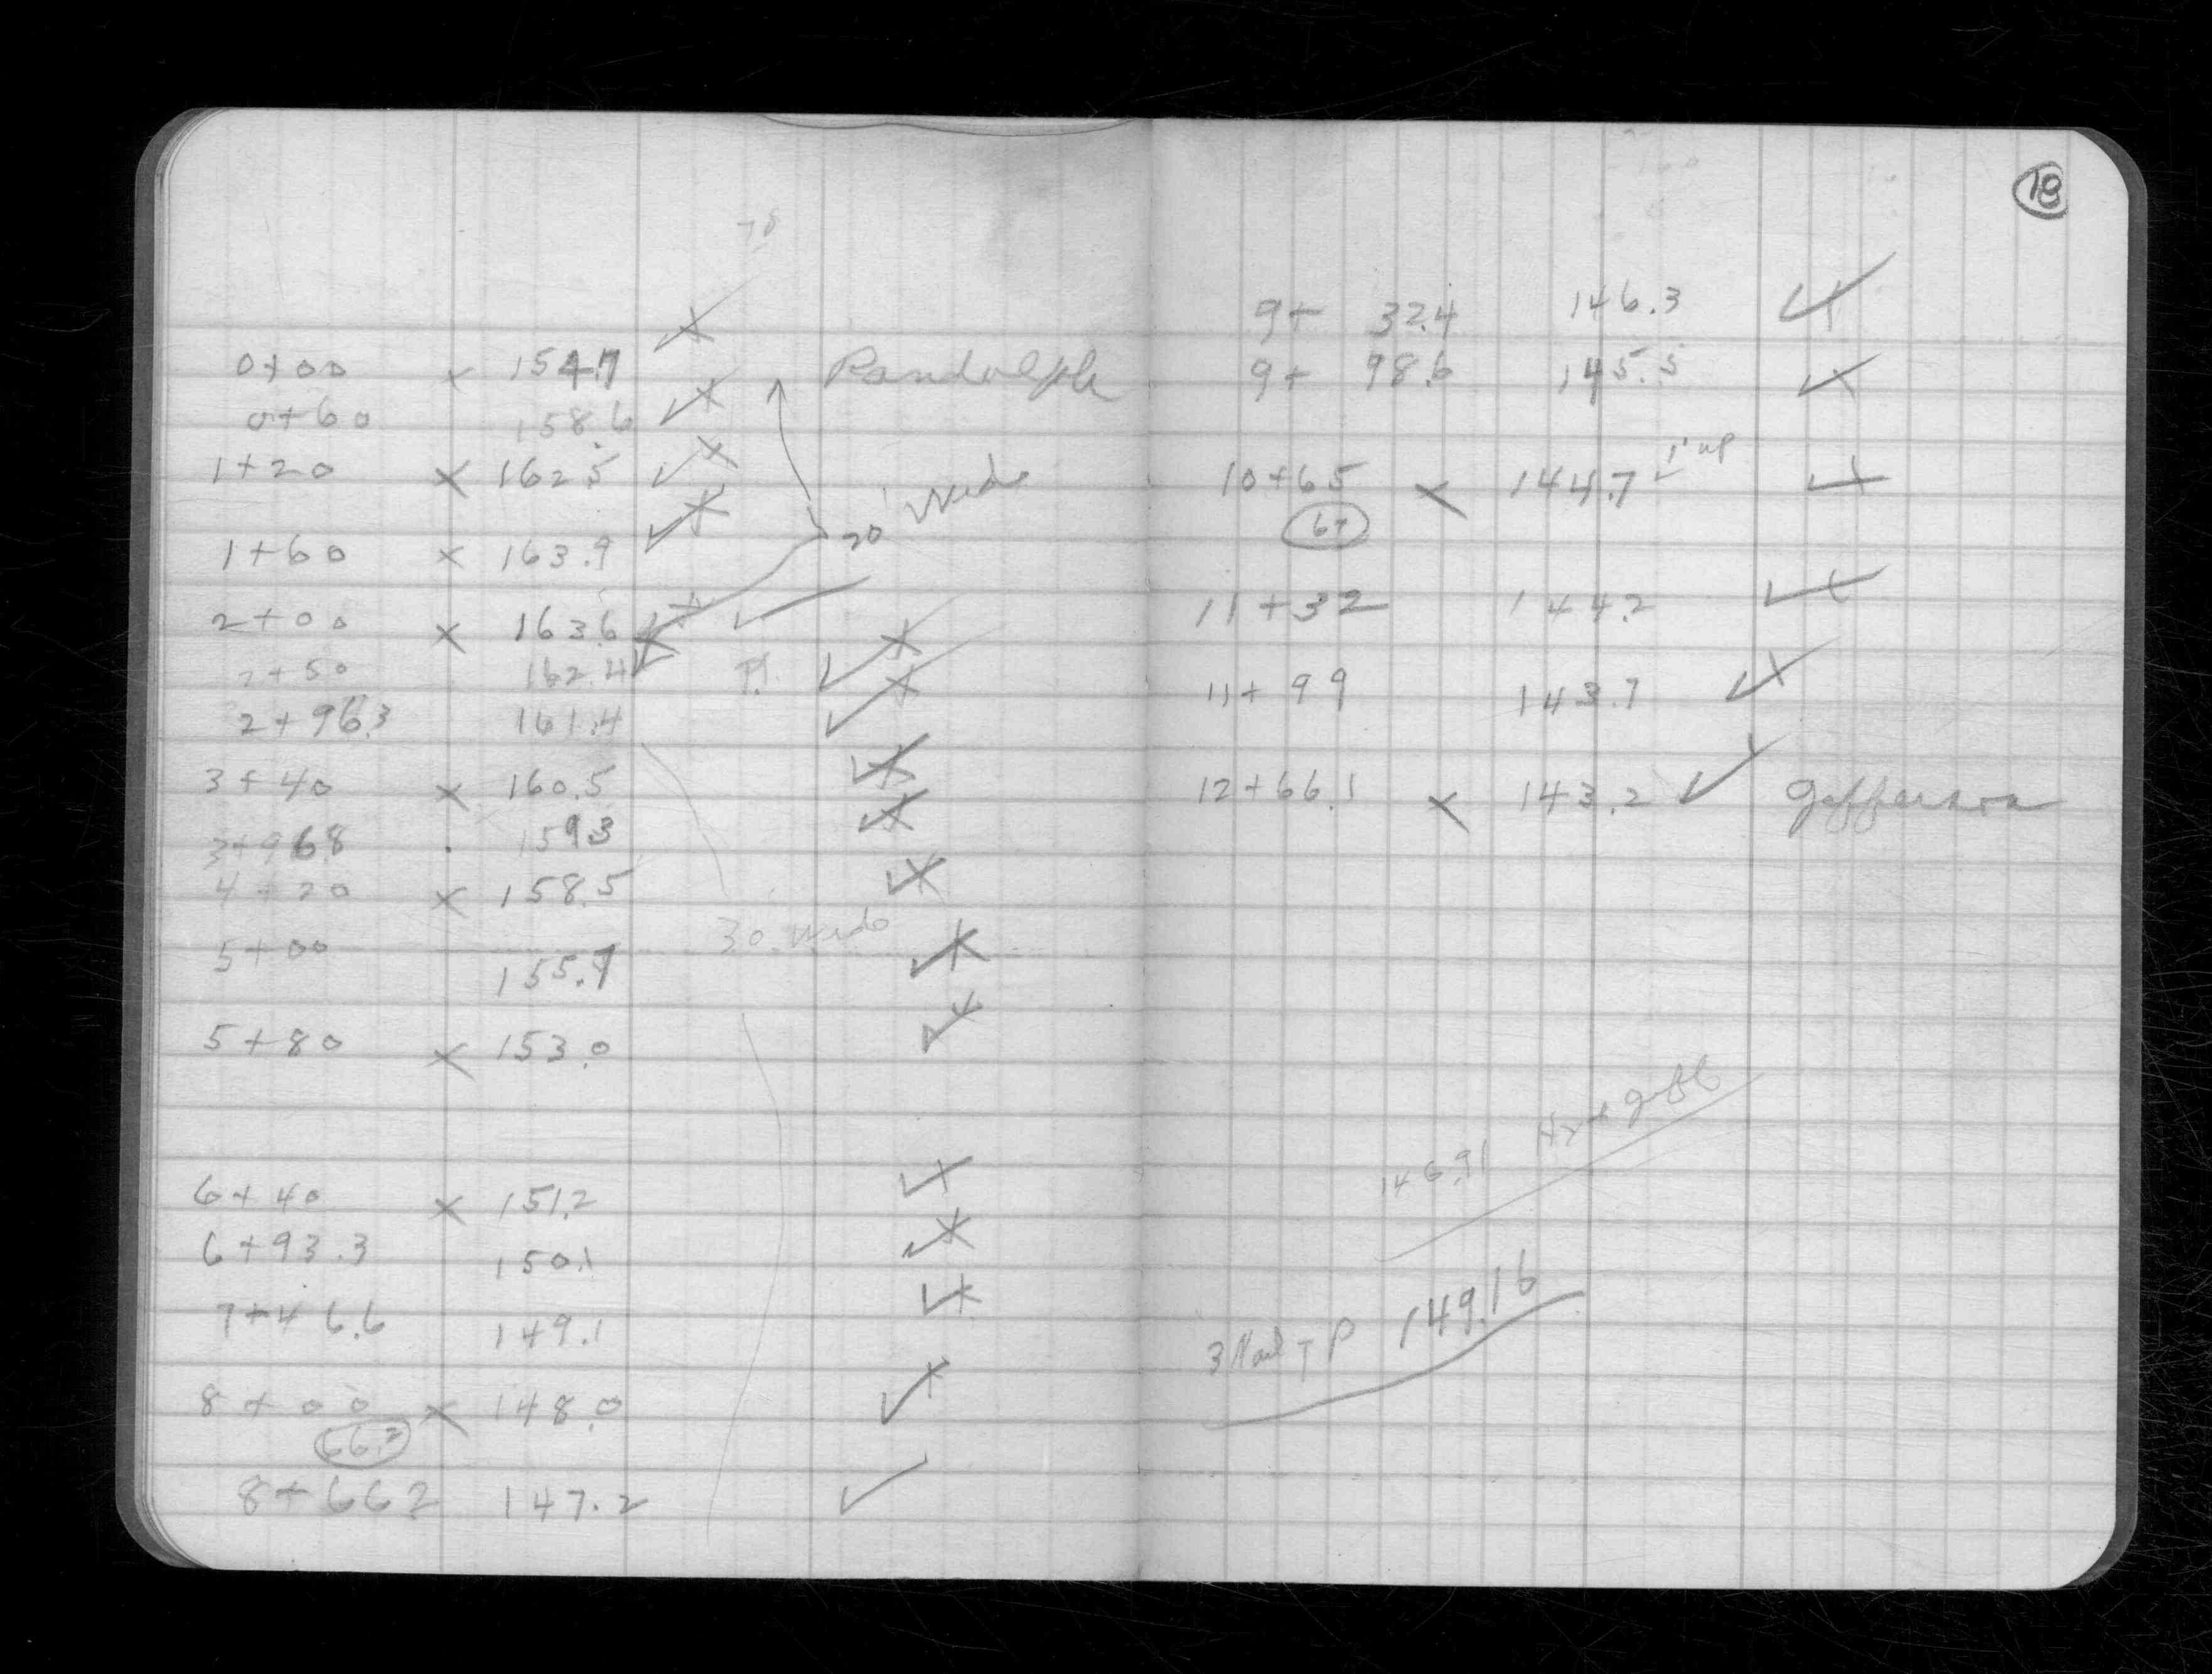 0+00 x 154.7 Randolph
0+60 158.6
1+20 x 162.5
20' Wide
1+60 x 163.9
2+00 x 163.6
2+50 162.4
2+96.3 161.4
3+40 x 160.5
3+968 159.3
4+20 x 158.5
30' Wide
5+00 155.7
5+80 x 153.0
6+40 x 151.2
6+93.3 150.1
7+46.6 149.1
8+00 x 148.0
66.2
8+662 147.2
18
9+ 32.4 146.3
9+ 98.6 145.5
1' up
10+65 x 144.7
67
11+32 144.2
11+99 143.7
12+66.1 x 143.2 Jefferson
146.91 Hyd
3 Nail TP 149.16